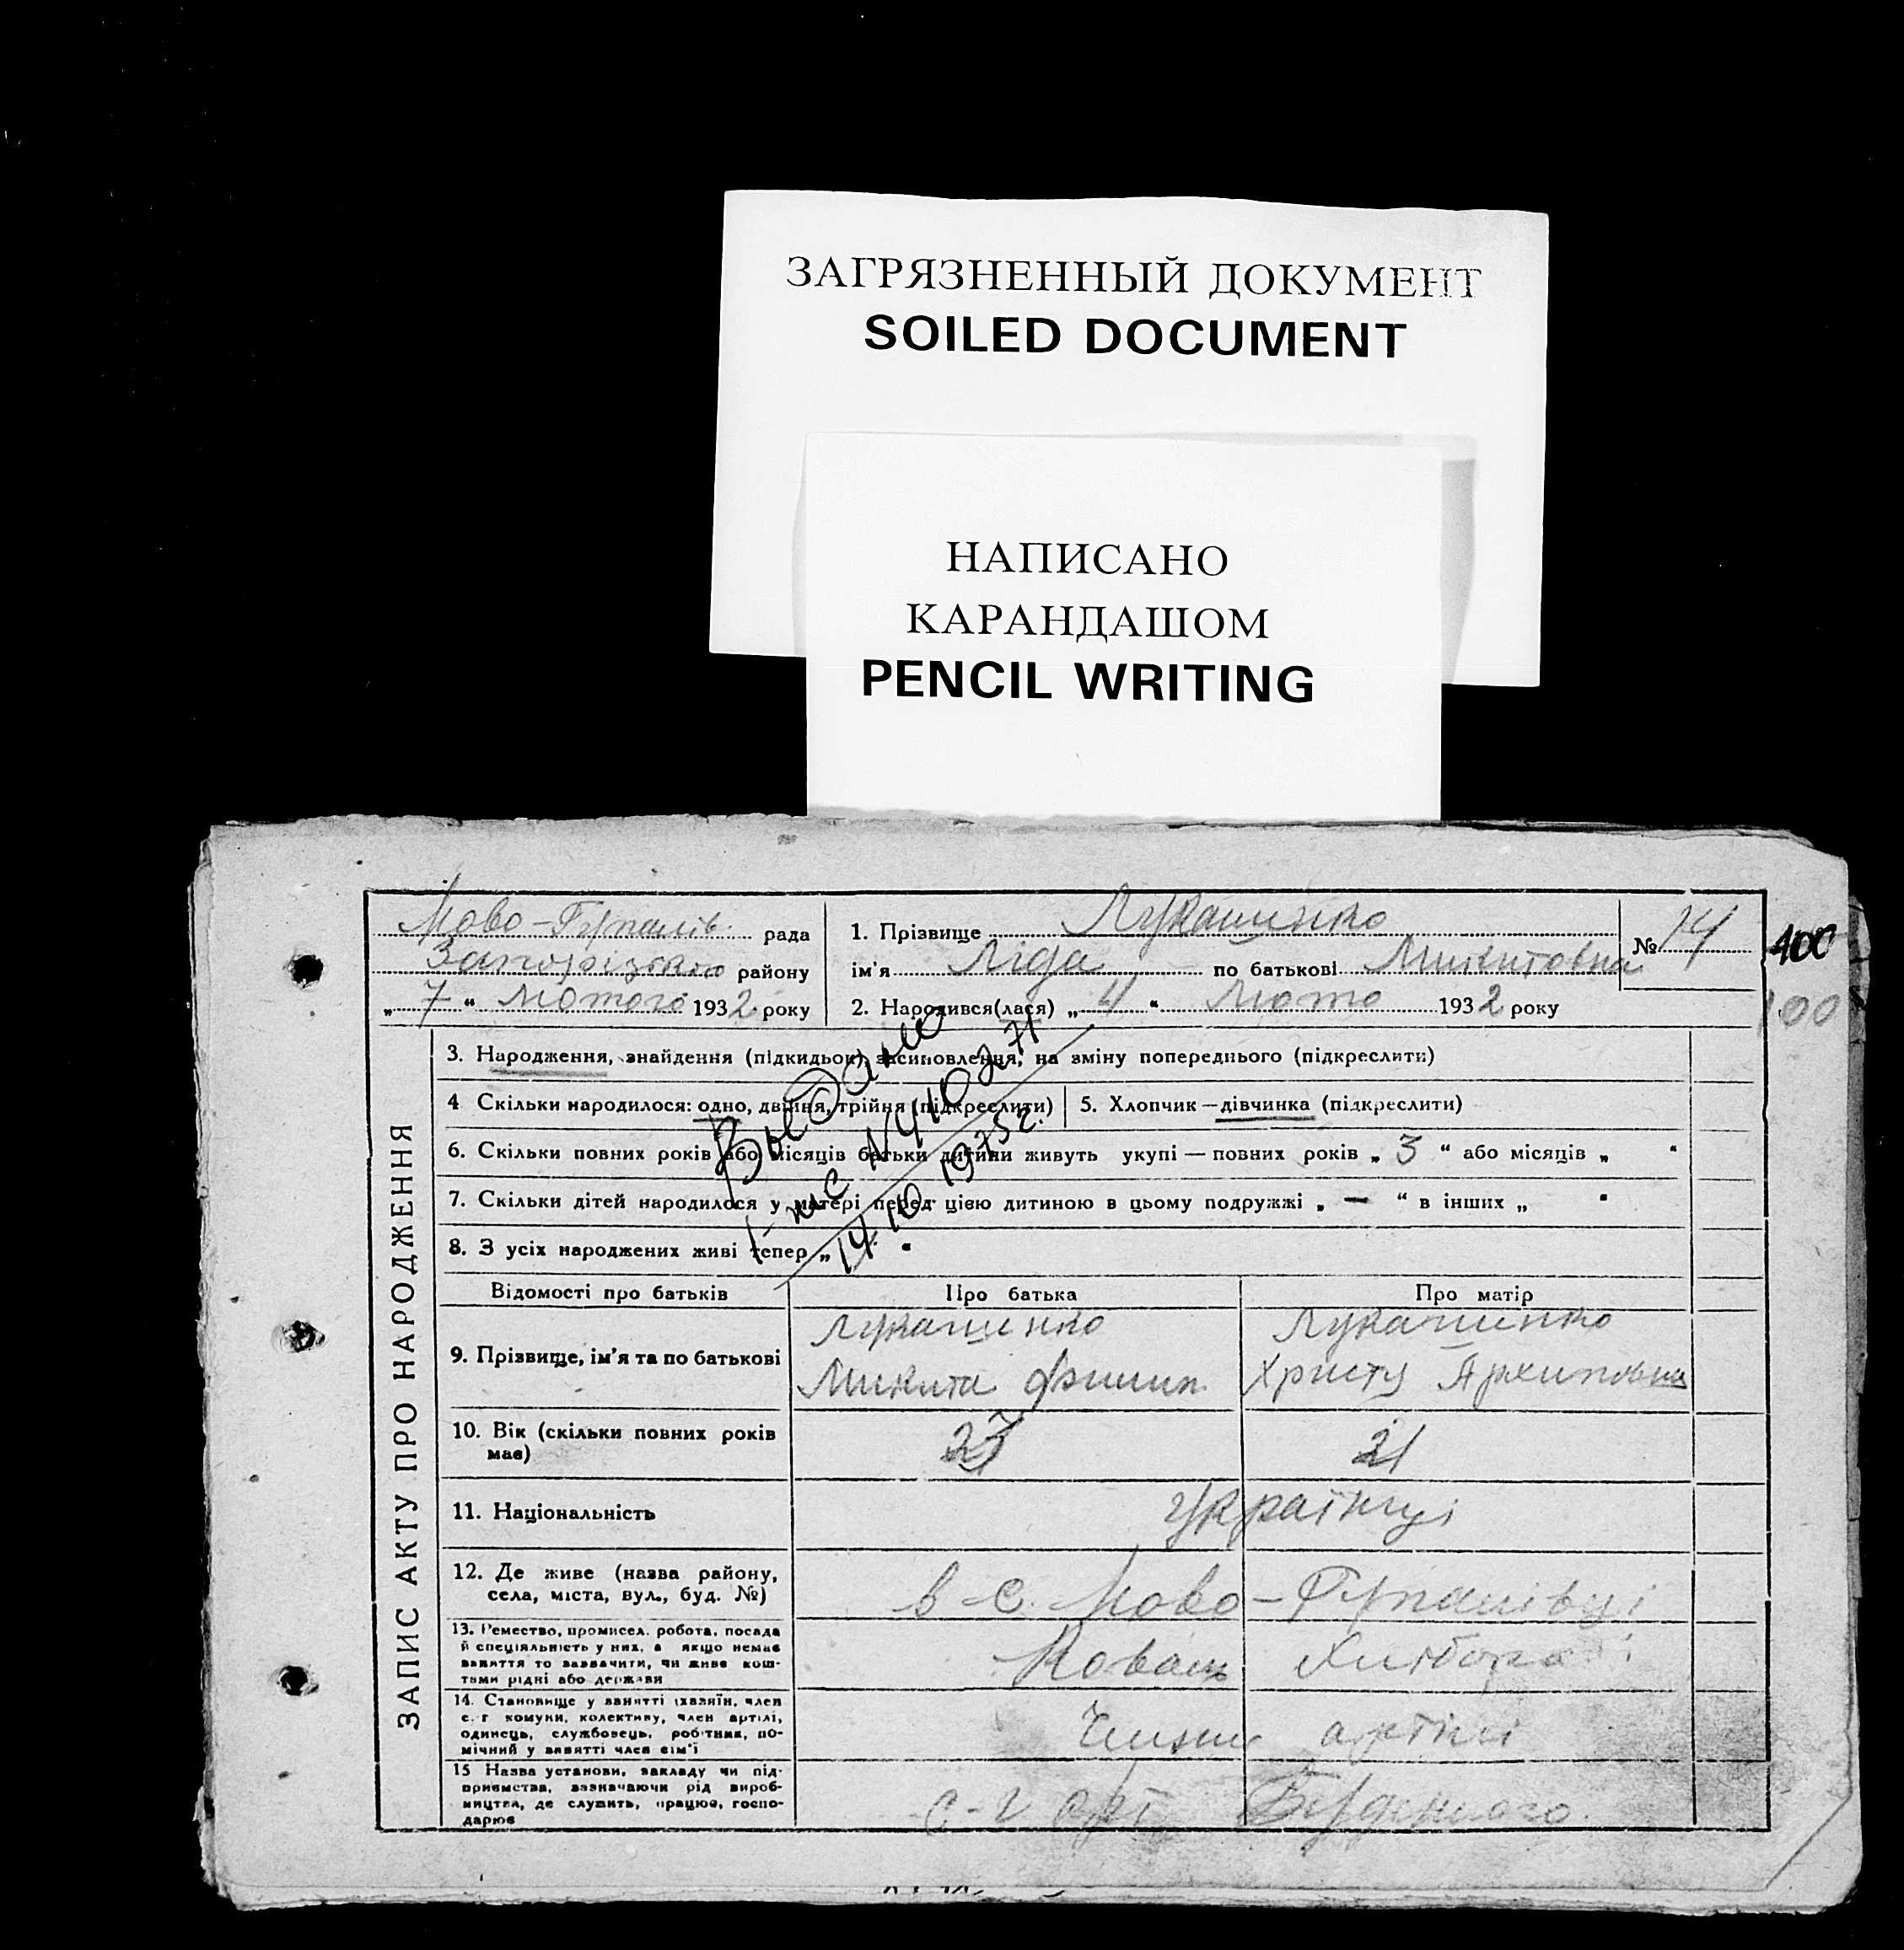 ЗАГРЯЗНЕННЫЙ ДОКУМЕНТ
SOILED DOCUMENT
НАПИСАНО
КАРАНДАШОМ
PENCIL WRITING
ЗАПИС АКТУ ПРО НАРОДЖЕННЯ
Ново- рада
району
„7“ Лютого 1932 року
1. Прізвище Лукашинко
ім'я Ліда по батькові Микитовна
№ 14
400
100
2. Народився(лася) „4“ Люто 1932 року
3. Народження, знайдення (підкидьок), засиновлення, на зміну попереднього (підкреслити)
4 Скільки народилося: одно, двійня, трійня (підкреслити)
5. Хлопчик — дівчинка (підкреслити)
6. Скільки повних років або місяців батьки дитини живуть укупі — повних років „3“ або місяців „ “
7. Скільки дітей народилося у матері перед цією дитиною в цьому подружжі „—“ в інших „ “
8. З усіх народжених живі тепер „ “
Выдано
14.10 1975г.
Відомості про батьків Про батька Про матір
9. Прізвище, ім'я та по батькові
Лукашинко
Микита
Лукашинко
Христу Архиповна
10. Вік (скільки повних років
має)
21
11. Національність
Українці
12. Де живе (назва району,
села, міста, вул., буд. №)
в с. Ново-
13. Ремество, промисел, робота, посада
й спеціяльність у них, а якщо немає
заняття то зазначити, чи живе кош-
тами рідні або держави
Коваль
14. Становище у занятті (хазяїн, член
с.-г комуни, колективу, член артілі,
одинець, службовець, робітник, по-
мічний у занятті член сім'ї
Члени артілі
15 Назва установи, закладу чи під-
приємства, зазначаючи рід вироб-
ництва, де служить, працює, госпо-
дарює
с-г арт. Буденного.